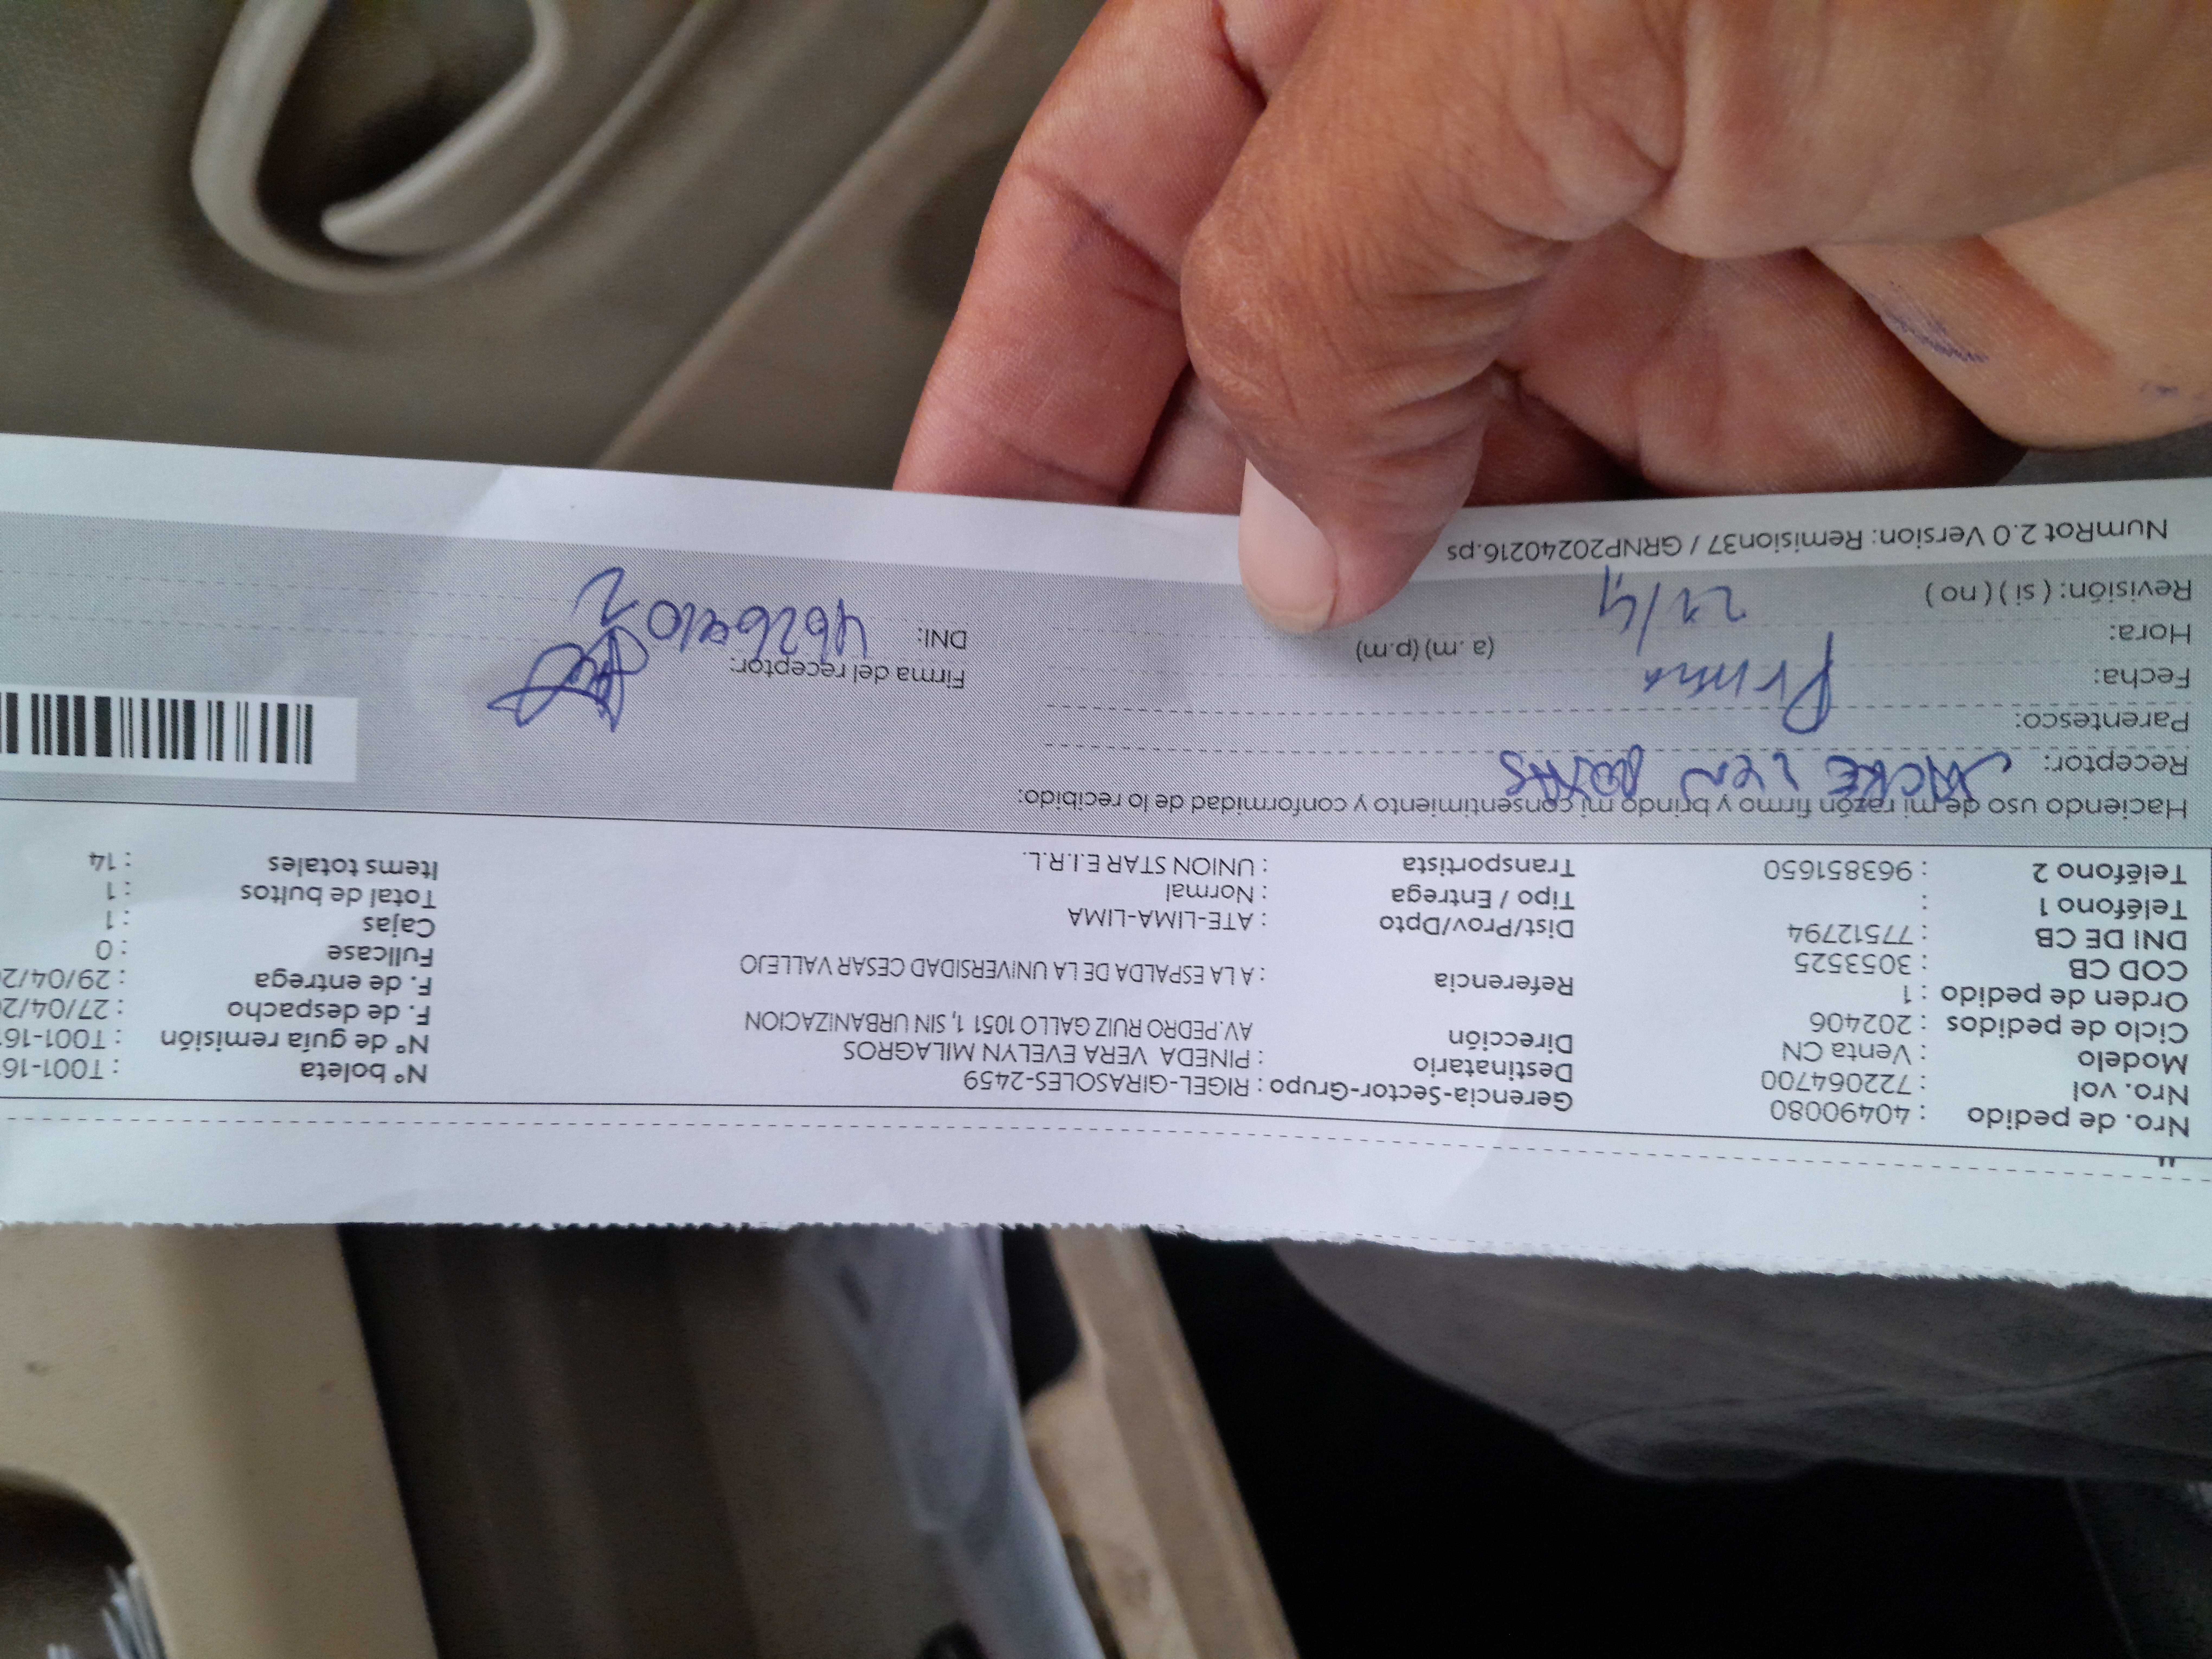 Nro. de pedido : 40490080
Nro. vol : 722064700
Modelo : Venta CN
Ciclo de pedidos : 202406
Orden de pedido : 1
COD CB : 3053525
DNI DE CB : 77512794
Teléfono 1 :
Teléfono 2 : 963851650
Gerencia-Sector-Grupo : RIGEL-GIRASOLES-2459
Destinatario : PINEDA VERA EVELYN MILAGROS
Dirección AV.PEDRO RUIZ GALLO 1051 1, SIN URBANIZACION
Referencia : A LA ESPALDA DE LA UNIVERSIDAD CESAR VALLEJO
Dist/Prov/Dpto : ATE-LIMA-LIMA
Tipo / Entrega : Normal
Transportista : UNION STAR E.I.R.L.
Nº boleta : T001-16
Nº de guía remisión : T001-16
F. de despacho : 27/04/2
F. de entrega : 29/04/2
Fullcase : 0
Cajas : 1
Total de bultos : 1
Items totales : 14
Haciendo uso de mi razón firmo y brindo mi consentimiento y conformidad de lo recibido:
Receptor:
Parentesco: Prima
Fecha:
Hora: (a .m) (p.m)
Revisión: ( si ) ( no )
Firma del receptor:
DNI:
NumRot 2.0 Version: Remision37 / GRNP20240216.ps